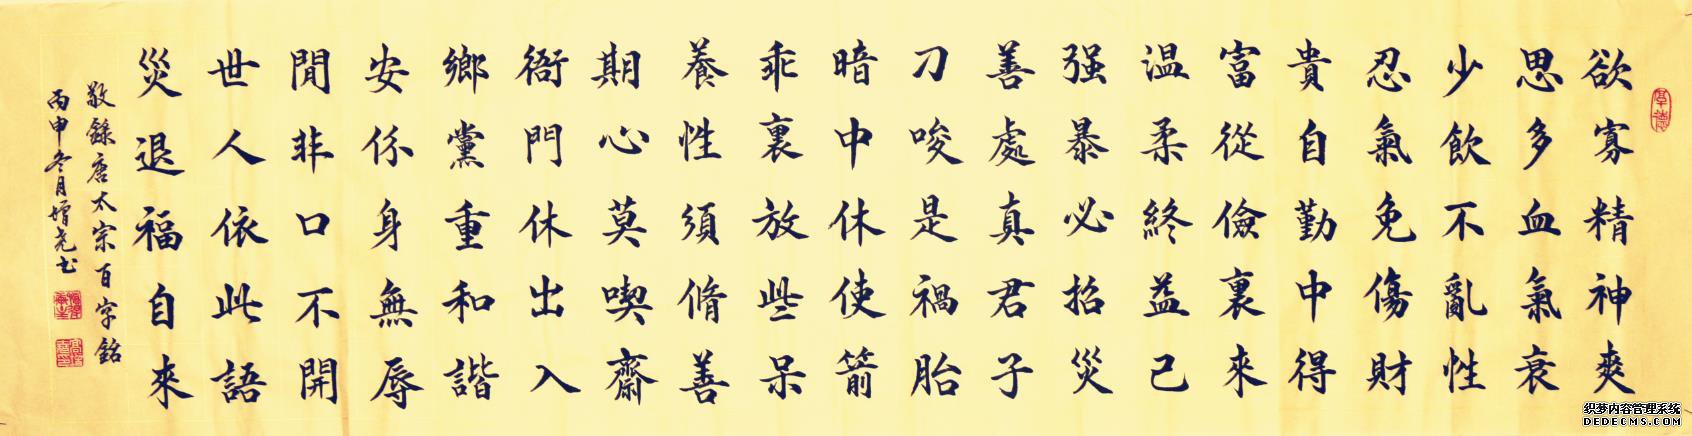 厚德
欲寡精神爽
思多血氣衰
少飲不亂性
忍氣免傷財
貴自勤中得
富從儉裏來
温柔終益己
强暴必招災
善處真君子
刀唆是禍胎
暗中休使箭
乖裏放些呆
養性須脩善
期心莫喫齋
衙門休出入
鄉黨重和諧
安係身無辱
閒非口不開
世人依此語
災退福自來
敬錄唐太宗百字銘
丙申冬月增尧书
织梦内容管理系统
DEDECMS.COM